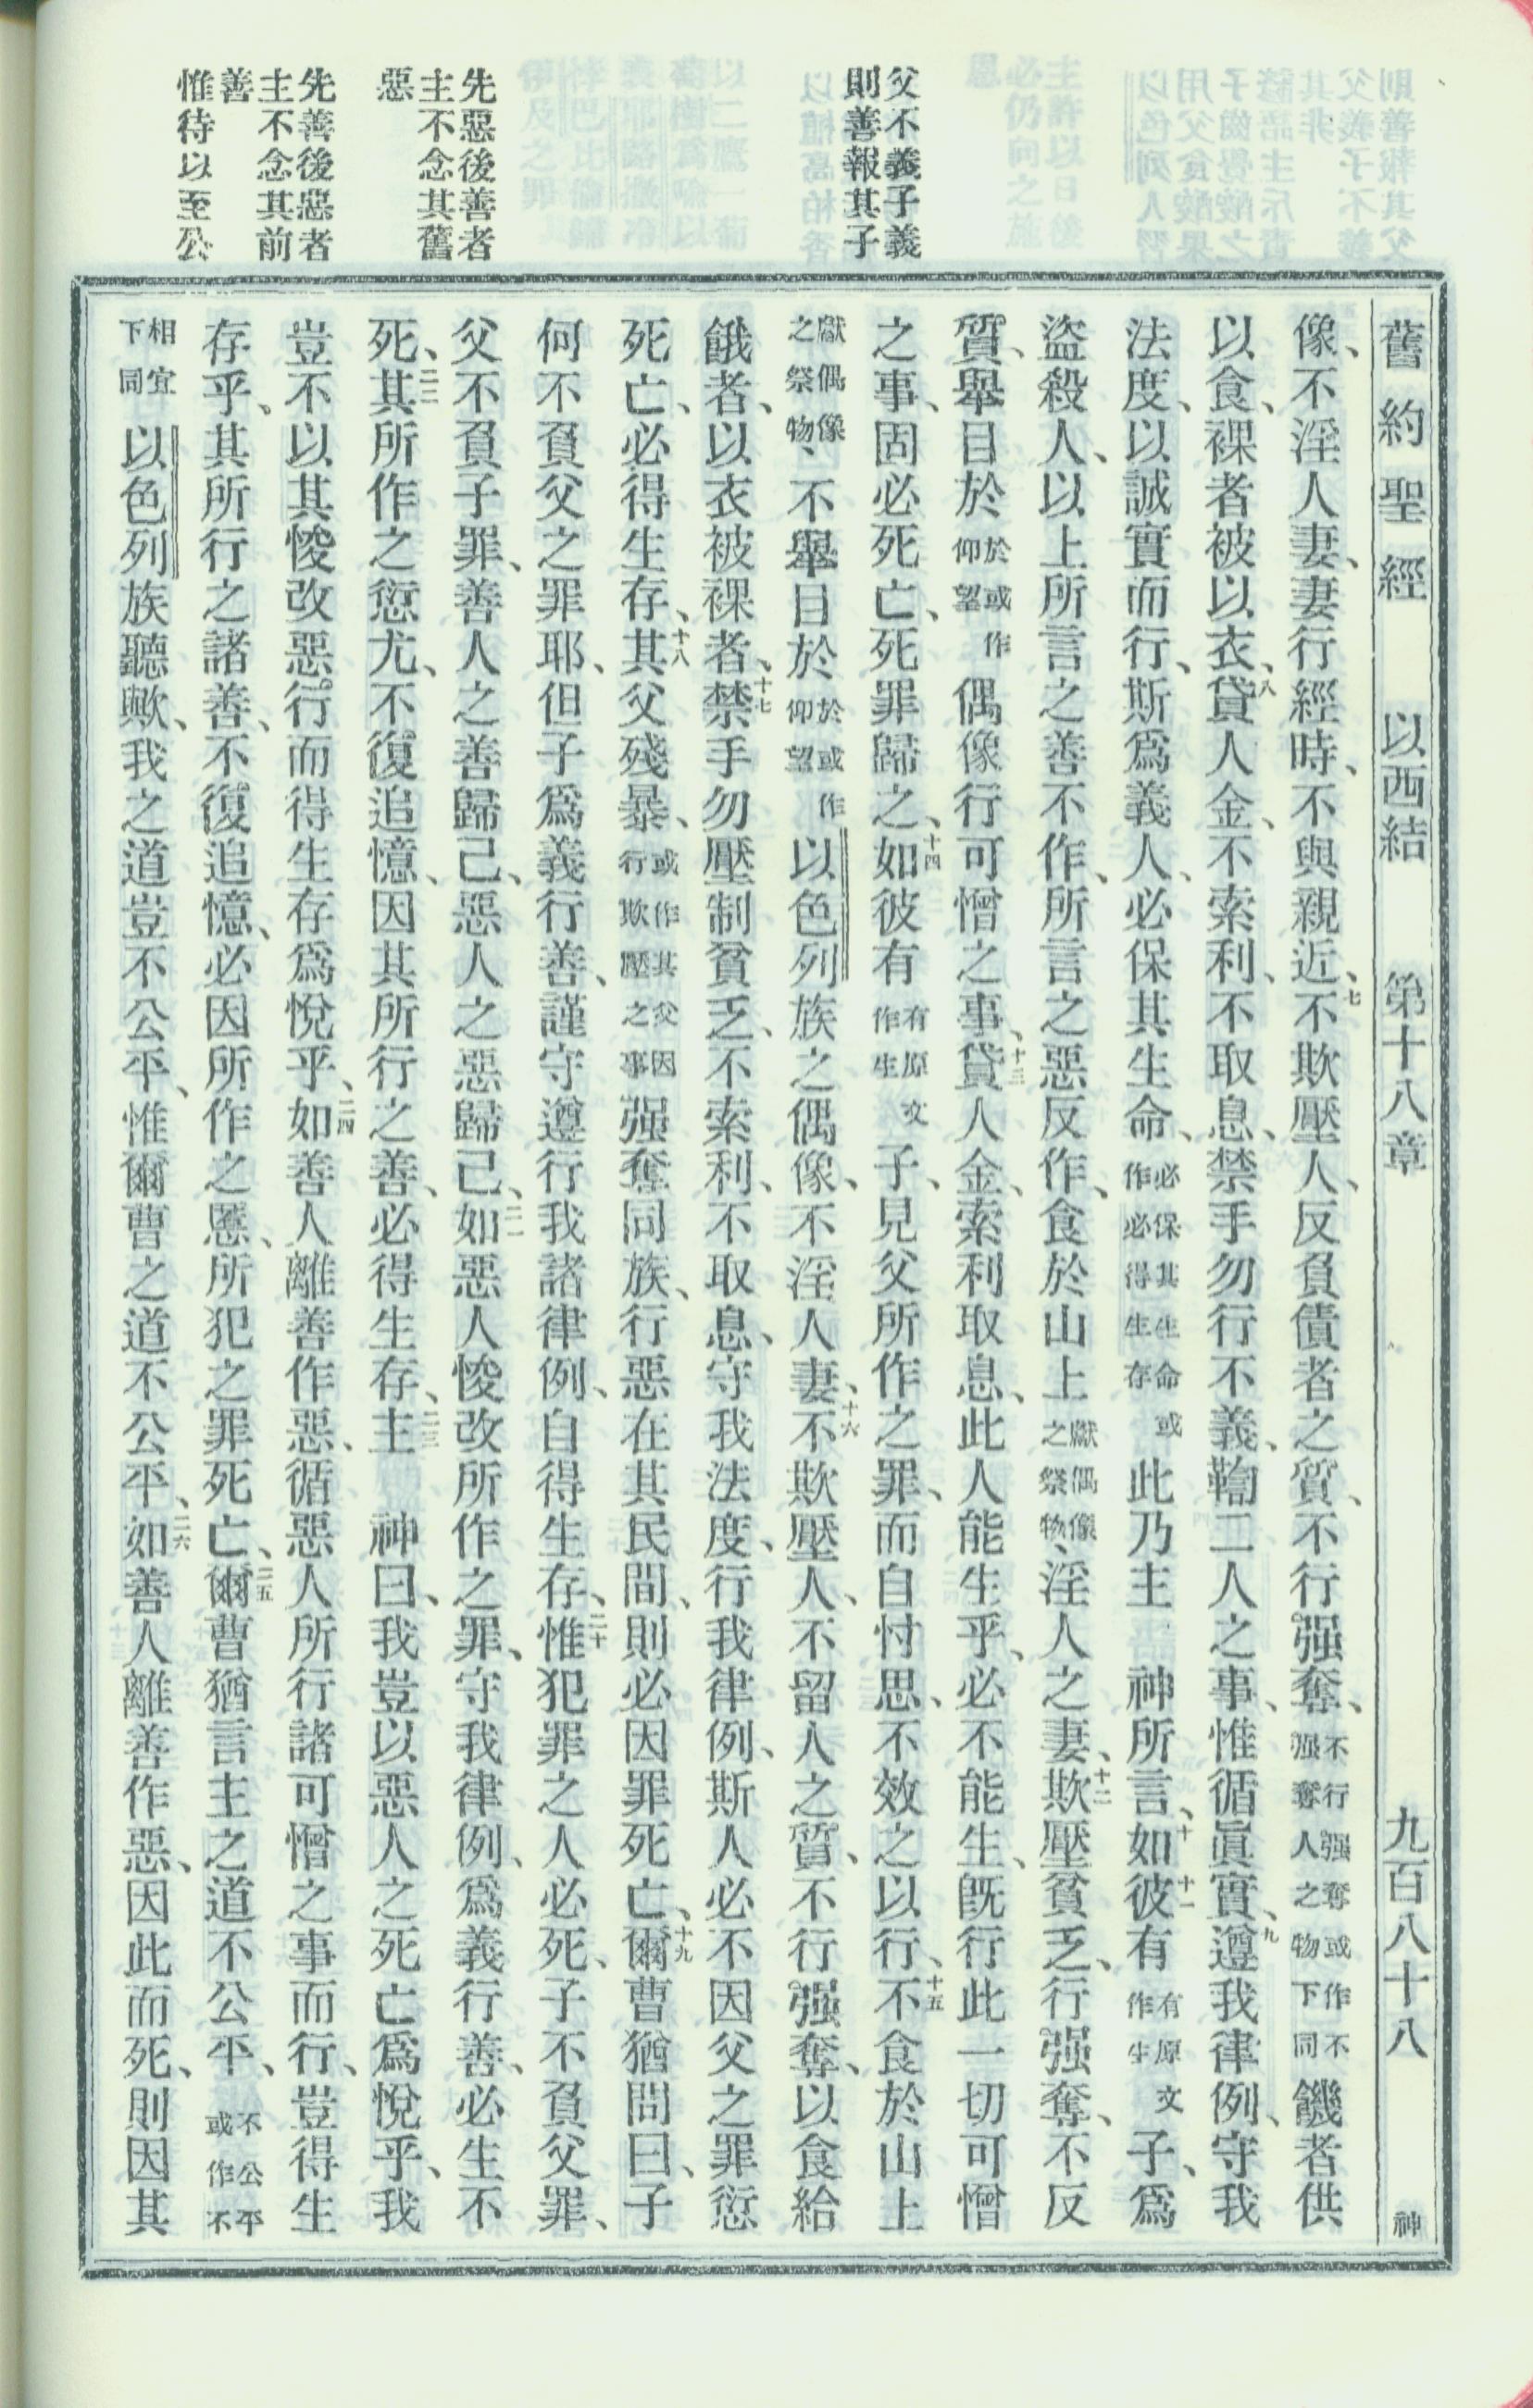 父不義子義
則善報其子
先惡後善者
主不念其舊
惡
先善後惡者
主不念其前
善
惟待以至公
舊約聖經 以西結 第十八章 九百八十八 神
像、不淫人妻、妻行經時、不與親近、七不欺壓人、反負債者之質、不行强奪、不行强奪或作不强奪人之物下同饑者供
以食、裸者被以衣、八貸人金、不索利、不取息、禁手勿行不義、鞫二人之事、惟循眞實、九遵我律例、守我
法度、以誠實而行、斯爲義人、必保其生命、必保其生命或作必得生存此乃主 神所言、十如彼十一有有原文作生子、爲
盜殺人、以上所言之善不作、所言之惡反作、食於山上獻偶像之祭物、淫人之妻、十二欺壓貧乏、行强奪、不反
質、舉目於於或作仰望偶像、行可憎之事、十三貸人金、索利取息、此人能生乎、必不能生、旣行此一切可憎
之事、固必死亡、死罪歸之、十四如彼有有原文作生子、見父所作之罪、而自忖思、不效之以行、十五不食於山上
獻偶像之祭物、不舉目於於或作仰望以色列族之偶像、不淫人妻、十六不欺壓人、不留人之質、不行强奪、以食給
餓者、以衣被裸者、十七禁手勿壓制貧乏、不索利、不取息、守我法度、行我律例、斯人必不因父之罪愆
死亡、必得生存、十八其父殘暴、或作其父因行欺壓之事强奪同族、行惡在其民間、則必因罪死亡、十九爾曹猶問曰、子
何不負父之罪耶、但子爲義行善、謹守遵行我諸律例、自得生存、二十惟犯罪之人必死、子不負父罪、
父不負子罪、善人之善歸己、惡人之惡歸己、二一如惡人悛改所作之罪、守我律例、爲義行善、必生不
死、二二其所作之愆尤、不復追憶、因其所行之善、必得生存、二三主 神曰、我豈以惡人之死亡爲悅乎、我
豈不以其悛改惡行而得生存爲悅乎、二四如善人離善作惡、循惡人所行諸可憎之事而行、豈得生
存乎、其所行之諸善、不復追憶、必因所作之慝、所犯之罪死亡、二五爾曹猶言主之道不公平、不公平或作不
相宜下同以色列族聽歟、我之道豈不公平、惟爾曹之道不公平、二六如善人離善作惡、因此而死、則因其